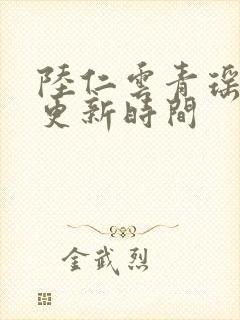 陸仁雲青瑶
更新時間
金武烈